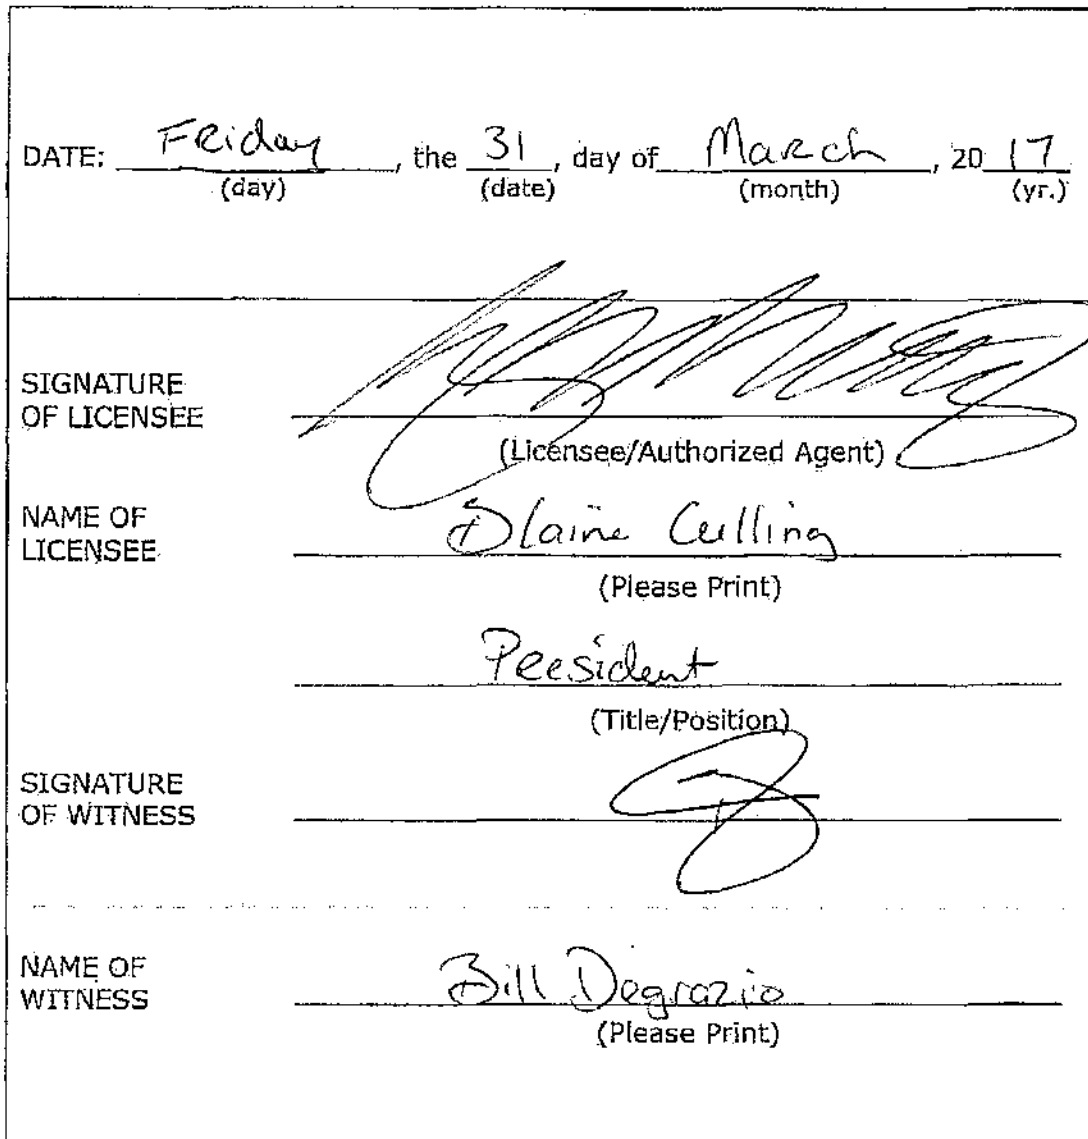 DATE: Friday, the 31, day of March, 20 17
(day) (date) (month) (yr.)
SIGNATURE
OF LICENSEE
(Licensee/Authorized Agent)
NAME OF
LICENSEE
Blaine Culling
(Please Print)
President
(Title/Position)
SIGNATURE
OF WITNESS
NAME OF
WITNESS
Bill Degrazio
(Please Print)